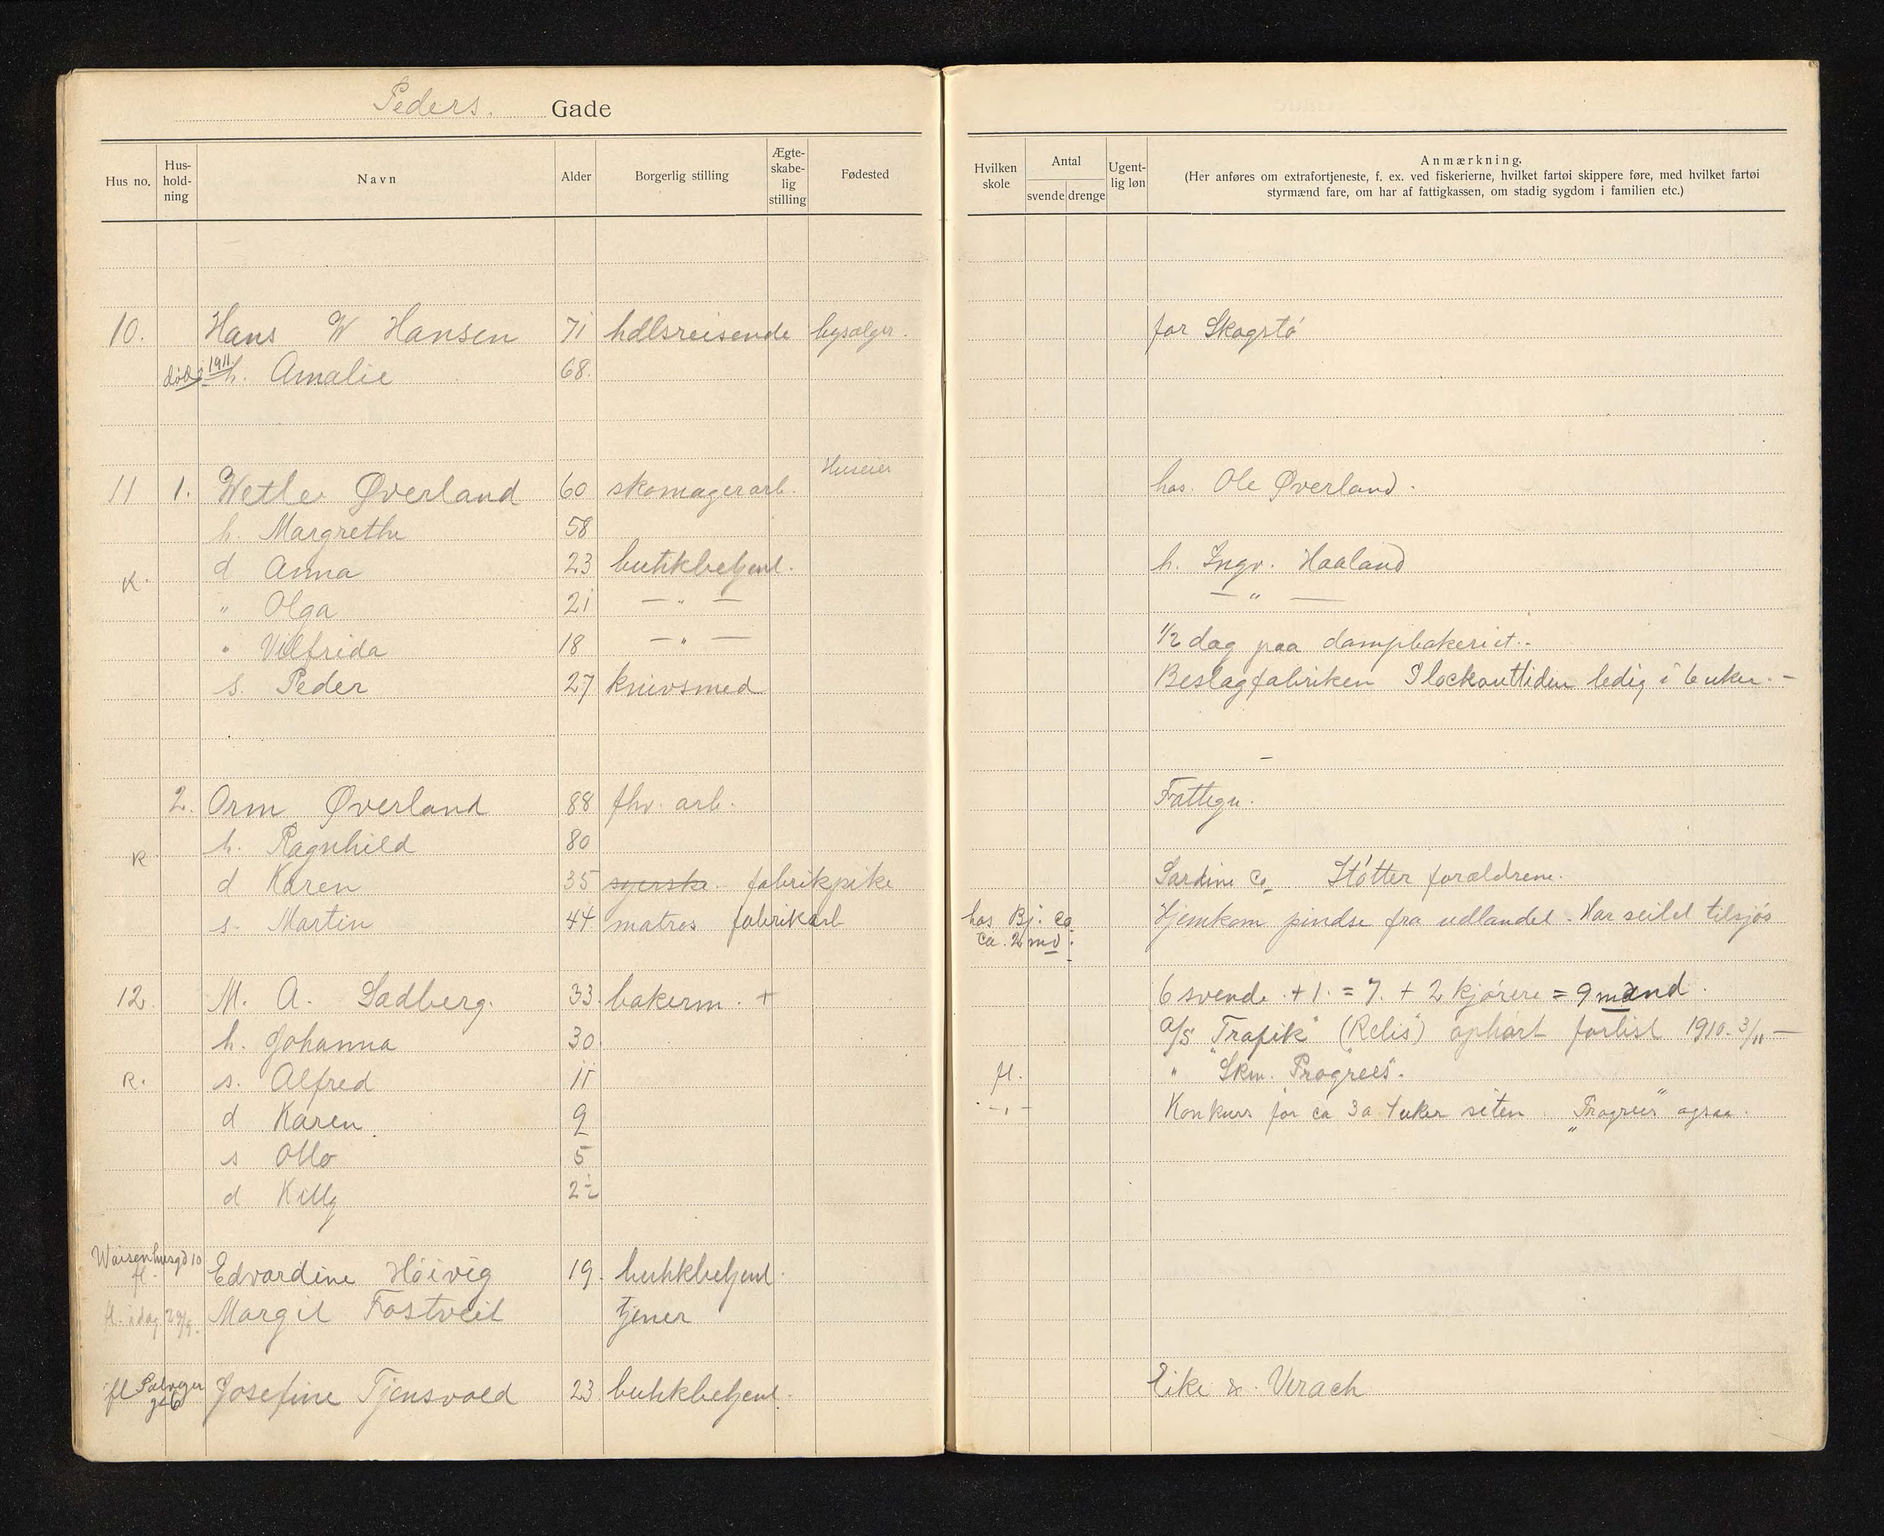 Peders. Gade
Hus no. Hus-hold-ning Navn Alder Borgerlig stilling Ægte-skabe-lig stilling Fødested Hvilken skole Antal svende drenge Ugent-lig løn Anmærkning.
(Her anføres om extrafortjeneste, f. ex. ved fiskerierne, hvilket fartøi skippere føre, med hvilket fartøi
styrmænd fare, om har af fattigkassen, om stadig sygdom i familien etc.)
10. Hans W Hansen 71 hdlsreisende bysælger. for Skogstø
død 1911 h. Amalie 68.
Huseier
11 1. Wetle Øverland 60 skomagerarb. hos. Ole Øverland.
h. Margrethe 58
K. d Anna 23 butikbetjent. h. Ingv. Haaland
" Olga 21 — " — — " —
" Vilfrida 18 — " — 1/2 dag paa dampbakeriet.
s. Peder 27 knivsmed Beslagfabriken I lockouttiden ledig i 6 uker. —
2. Orm Øverland 88 fhv. arb. Fattigu.
R h. Ragnhild 80
d Karen 35 syerske. fabrikpike Sardine Co, Støtter forældrene.
s. Martin 44 matros fabrikarb hos Bj. Co Hjemkom pindse fra udlandet. Har seilet tilsjøs
ca. 2 md.
12. M. A. Sadberg. 33. bakerm. + 6 svende. + 1. = 7. + 2 kjørere = 9 mand.
h. Johanna 30. A/S "Trafik" (Relis) ophørt forlist 1910. 3/11 —
R. s. Alfred 11 fl. " Skm. "Progress".
d Karen. 9 — " — Konkurs for ca 3 a 4 uker siten. "Progress" ogsaa.
s Otto 5
d Killy 2½
Waisenhusgd 10
fl. Edvardine Høivig 19. butikbetjent.
fl. idag 29/9. Margit Fostveit tjener
fl Solvger
gt 6 Josefine Tjensvold 23 butikbetjent. Eike &. Verach